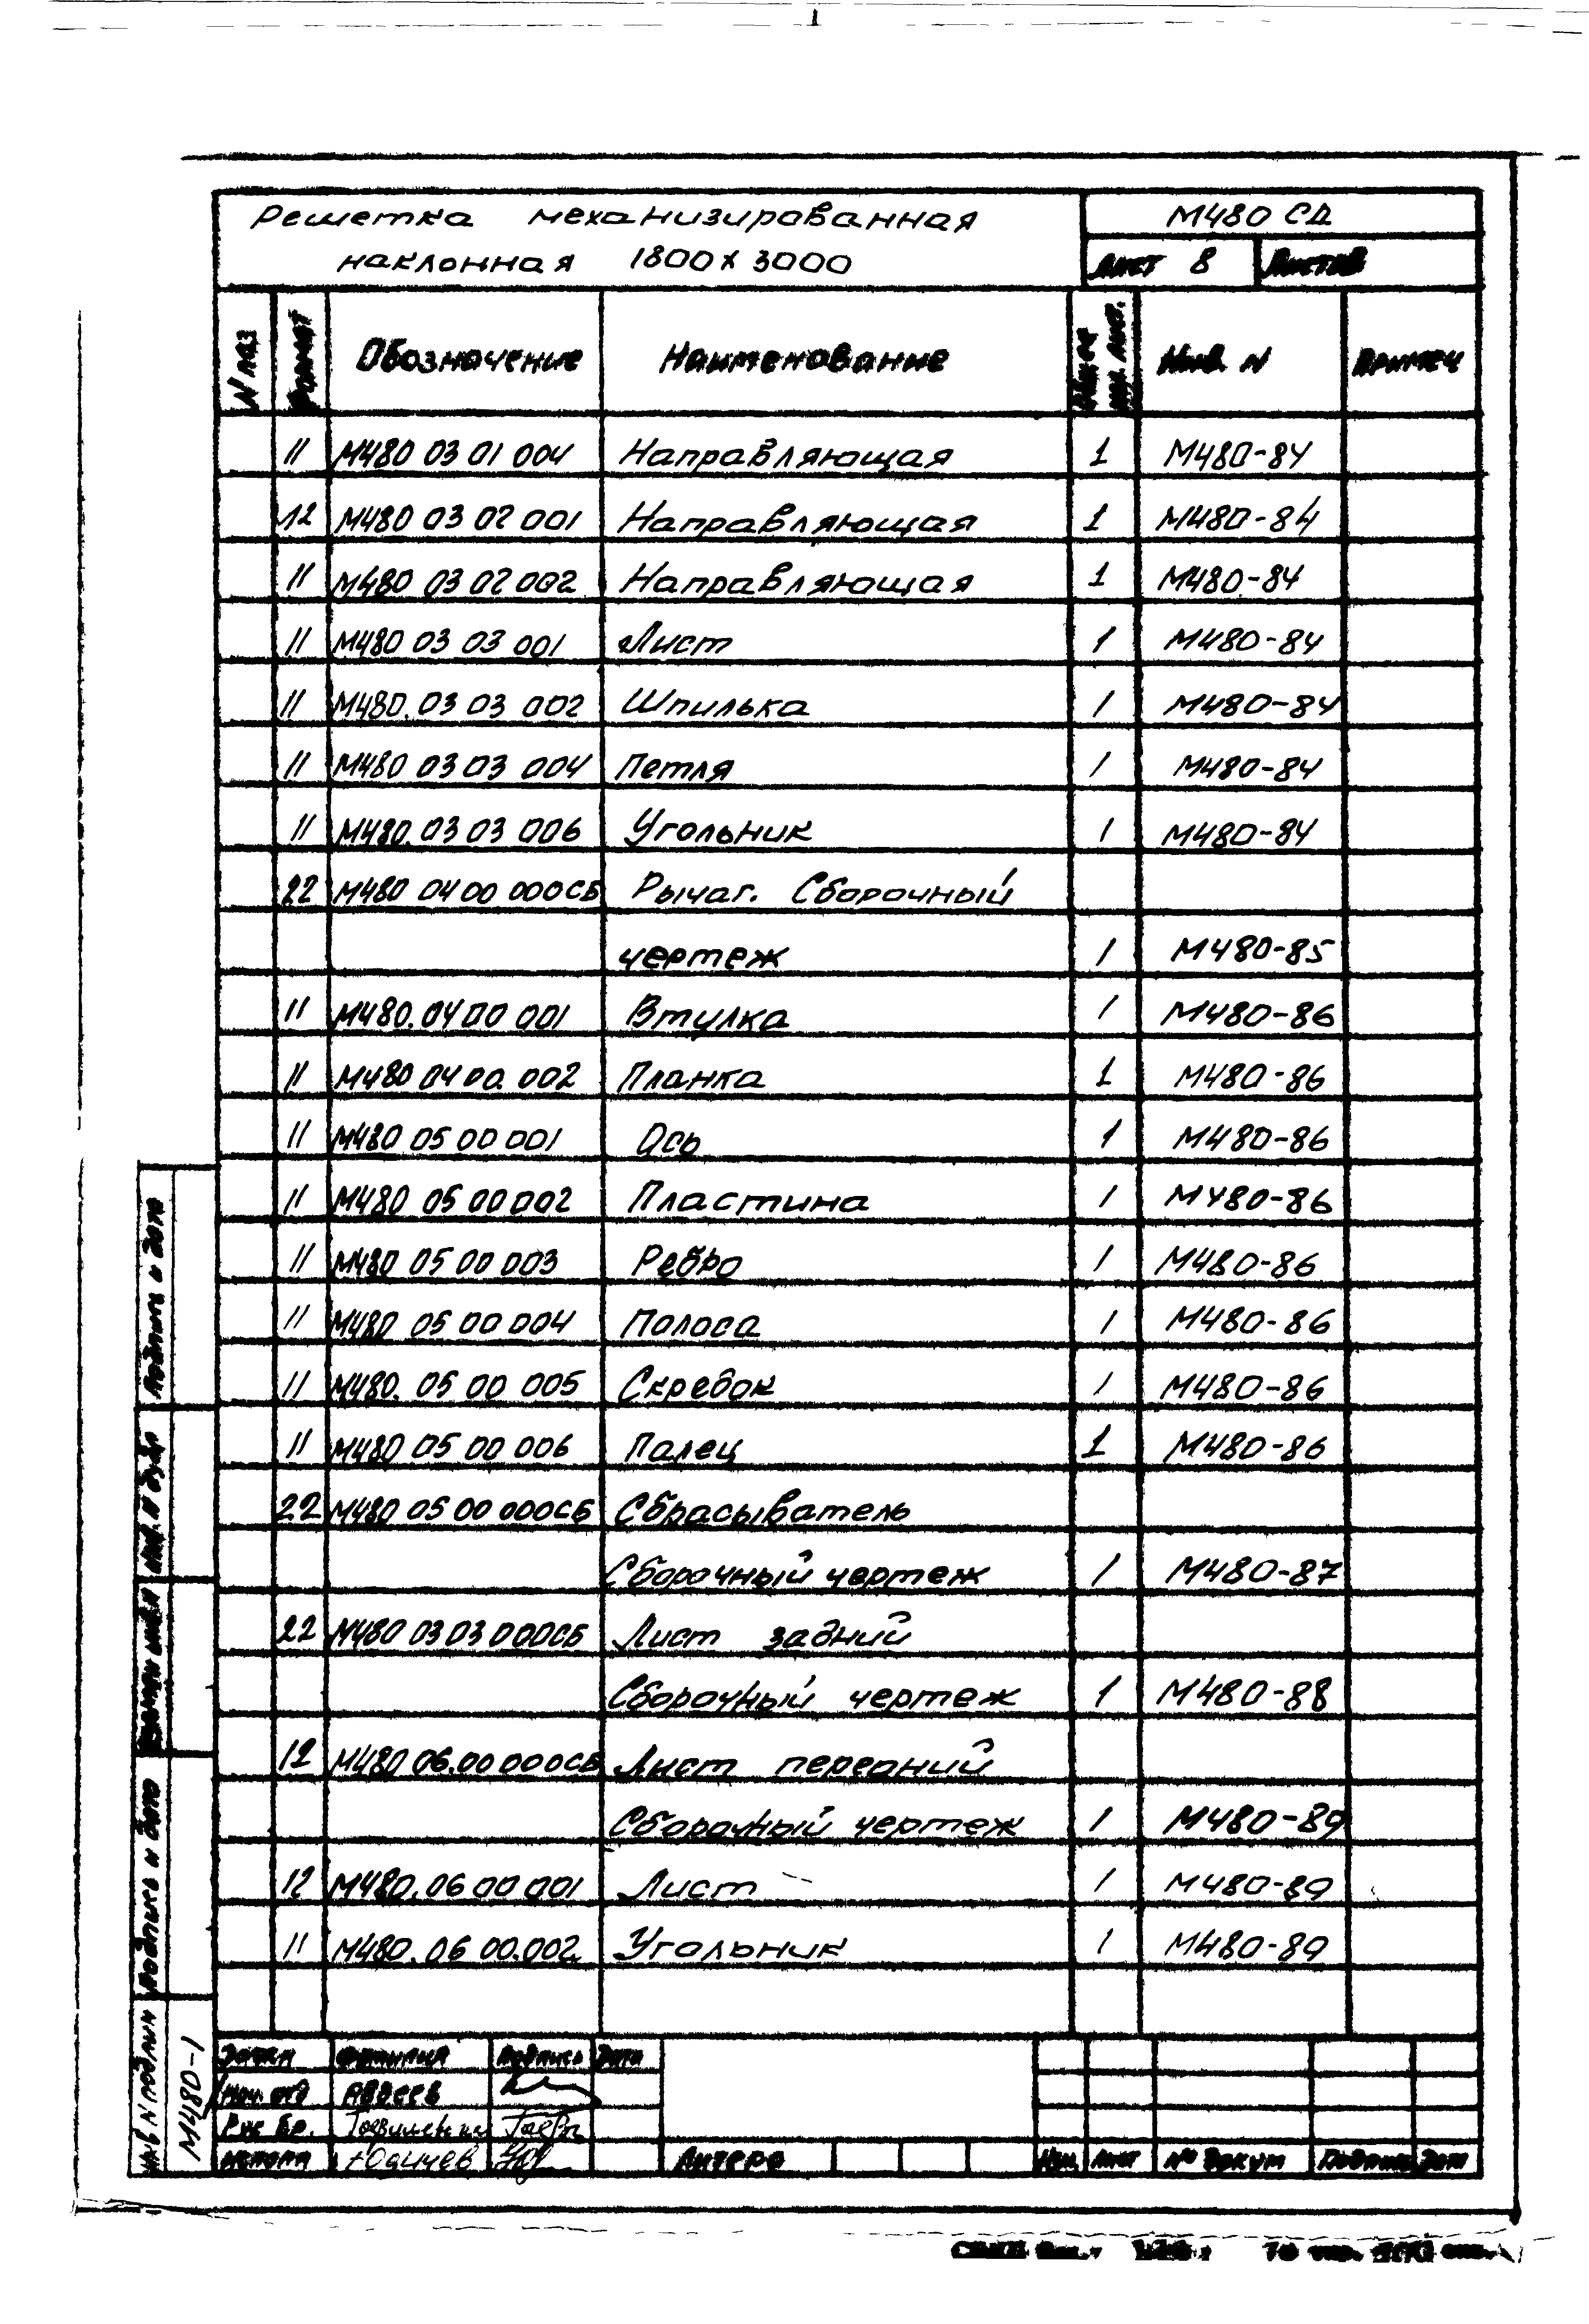 Решетка механизированная М480 СД
наклонная 1800х3000 Лист 8 Листов
N поз Формат Обозначение Наименование Общ. кол. лист. Инв. N Примеч
11 М480 03 01 004 Направляющая 1 М480-84
12 М480 03 02 001 Направляющая 1 М480-84
11 М480 03 02 002 Направляющая 1 М480-84
11 М480 03 03 001 Лист 1 М480-84
11 М480. 03 03 002 Шпилька 1 М480-84
11 М480 03 03 004 Петля 1 М480-84
11 М480. 03 03 006 Угольник 1 М480-84
22 М480 04 00 000СБ Рычаг. Сборочный
чертеж 1 М480-85
11 М480. 04 00 001 Втулка 1 М480-86
11 М480 04 00. 002 Планка 1 М480-86
11 М480 05 00 001 Ось 1 М480-86
11 М480 05 00 002 Пластина 1 М480-86
11 М480 05 00 003 Ребро 1 М480-86
11 М480 05 00 004 Полоса 1 М480-86
11 М480. 05 00 005 Скребок 1 М480-86
11 М480 05 00 006 Палец 1 М480-86
22 М480 05 00 000СБ Сбрасыватель
Сборочный чертеж 1 М480-87
22 М480 03 03 000СБ Лист задний
Сборочный чертеж 1 М480-88
12 М480 06.00 000СБ Лист передний
Сборочный чертеж 1 М480-89
12 М480. 06 00 001 Лист 1 М480-89
11 М480. 06 00.002 Угольник 1 М480-89
Подпись и дата
Инв. N дубл
Взамен инв N
Подпись и дата
Инв N подлин М480-1
Фамилия Подпись Дата
Нач. отд Авдеев
Рук бр.
Юдичев
Литера Изм. Лист № докум Подпись Дата